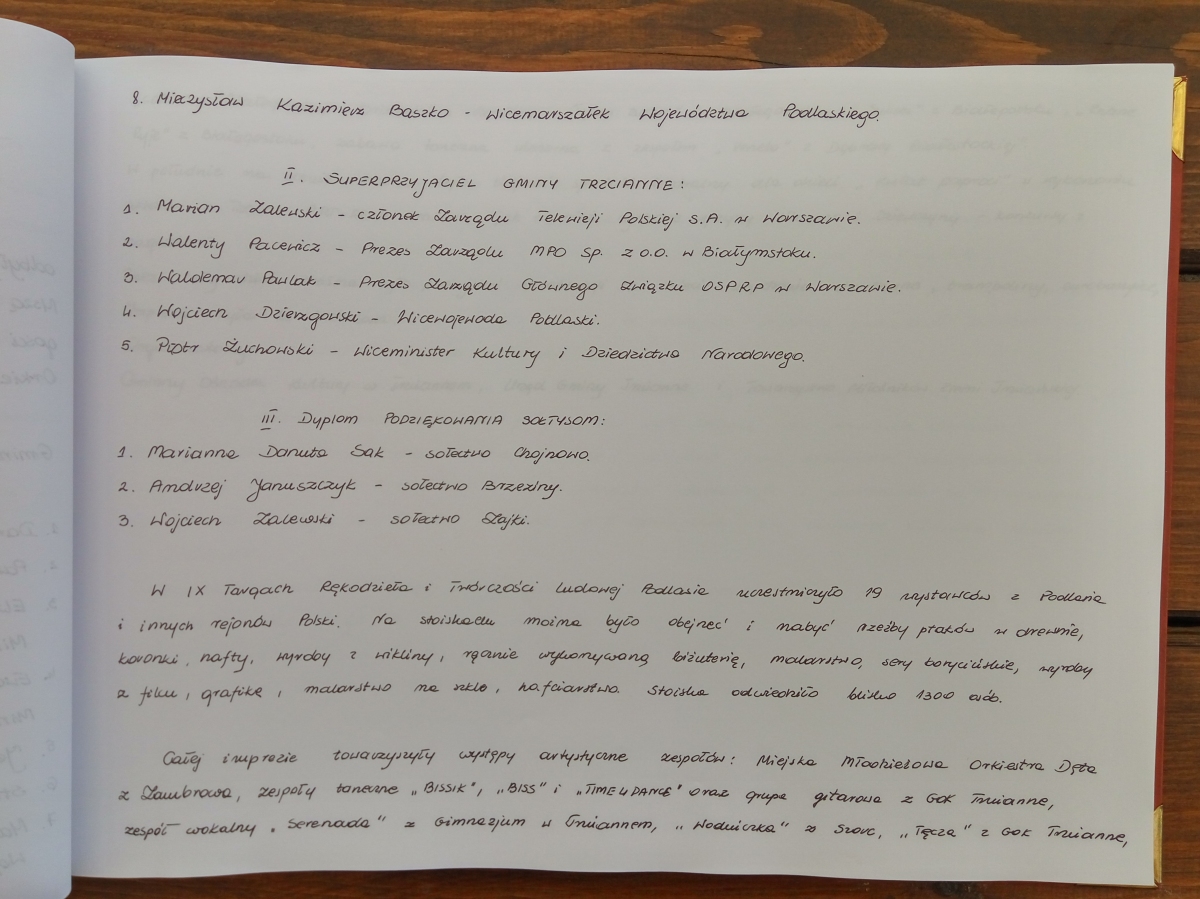 8. Mieczysław Kazimierz Baszko - Wicemarszałek Województwa Podlaskiego.
II. SUPERPRZYJACIEL GMINY TRZCIANNE:
1. Marian Zalewski - członek Zarządu Telewizji Polskiej S.A. w Warszawie.
2. Walenty Pacewicz - Prezes Zarządu MPO Sp. z o.o. w Białymstoku.
3. Waldemar Pawlak - Prezes Zarządu Głównego Związku OSP RP w Warszawie.
4. Wojciech Dzierzgowski - Wicewojewoda Podlaski.
5. Piotr Żuchowski - Wiceminister Kultury i Dziedzictwa Narodowego.
III. Dyplom PODZIĘKOWANIA SOŁTYSOM:
1. Marianna Danuta Sak - sołectwo Chojnowo.
2. Andrzej Januszczyk - sołectwo Brzeziny.
3. Wojciech Zalewski - sołectwo Zajki.
W IX Targach Rękodzieła i Twórczości Ludowej Podlasia uczestniczyło 19 wystawców z Podlasia
i innych rejonów Polski. Na stoiskach można było obejrzeć i nabyć rzeźby ptaków w drewnie,
koronki, hafty, wyroby z wikliny, ręcznie wykonywaną biżuterię, malarstwo, sery korycińskie, wyroby
z filcu, grafikę, malarstwo na szkle, hafciarstwo. Stoiska odwiedziło blisko 1300 osób.
Całej imprezie towarzyszyły występy artystyczne zespołów: Miejska Młodzieżowa Orkiestra Dęta
z Zambrowa, zespoły taneczne „BISSIK", „BISS" i „TIME4DANCE" oraz grupa gitarowa z GOK Trzcianne,
zespół wokalny „Serenada" z Gimnazjum w Trzciannem, „Wodniczka" ze „Tęcza" z GOK Trzcianne,